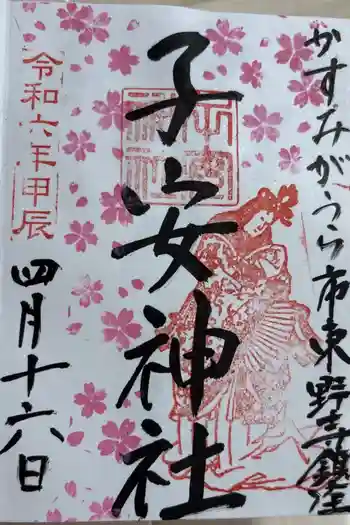 かすみがうら市東野寺鎮座
子安神社
令和六年甲辰
四月十六日